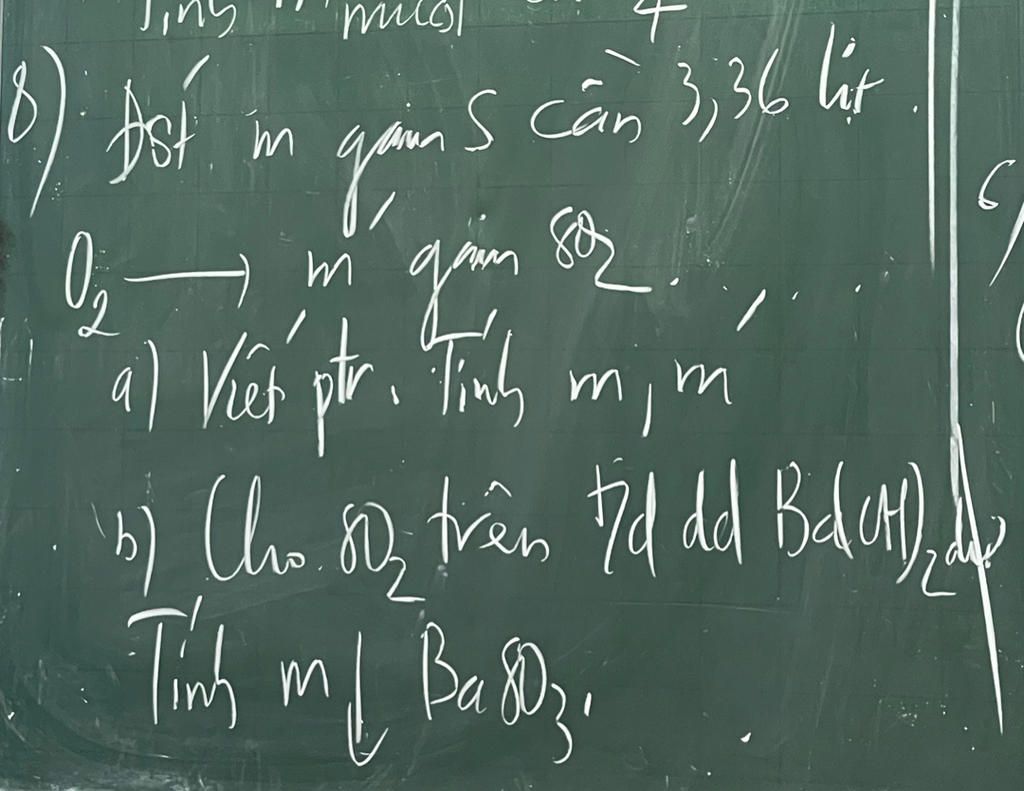 Tính m muối
8) Đốt m gam S cần 3,36 lít
O₂ ⟶ m' gam SO₂.
a) Viết ptr. Tính m, m'
b) Cho SO₂ trên t/d dd Ba(OH)₂ dư
Tính m↓ BaSO₃.